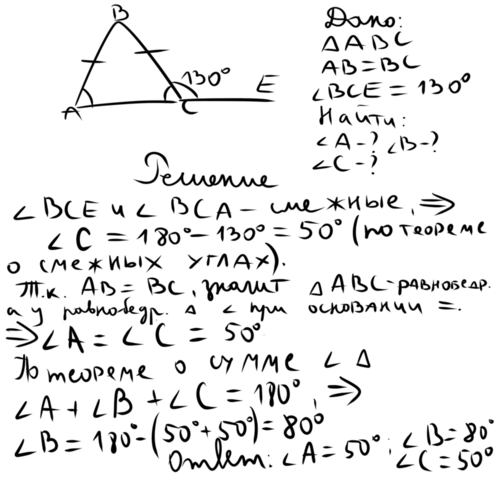 B
130°
A
C
E
Дано:
△ABC
AB=BC
∠BCE = 130°
Найти:
∠A-? ∠B-?
∠C-?
Решение
∠BCE и ∠BCA - смежные, ⇒
∠C = 180° - 130° = 50° (по теореме
о смежных углах).
Т.к. AB = BC, значит △ABC-равнобедр.
а у равнобедр. △ ∠ при основании =.
⇒ ∠A = ∠C = 50°
По теореме о сумме ∠ △
∠A + ∠B + ∠C = 180°, ⇒
∠B = 180° - (50° + 50°) = 80°
Ответ: ∠A = 50°; ∠B = 80°
∠C = 50°